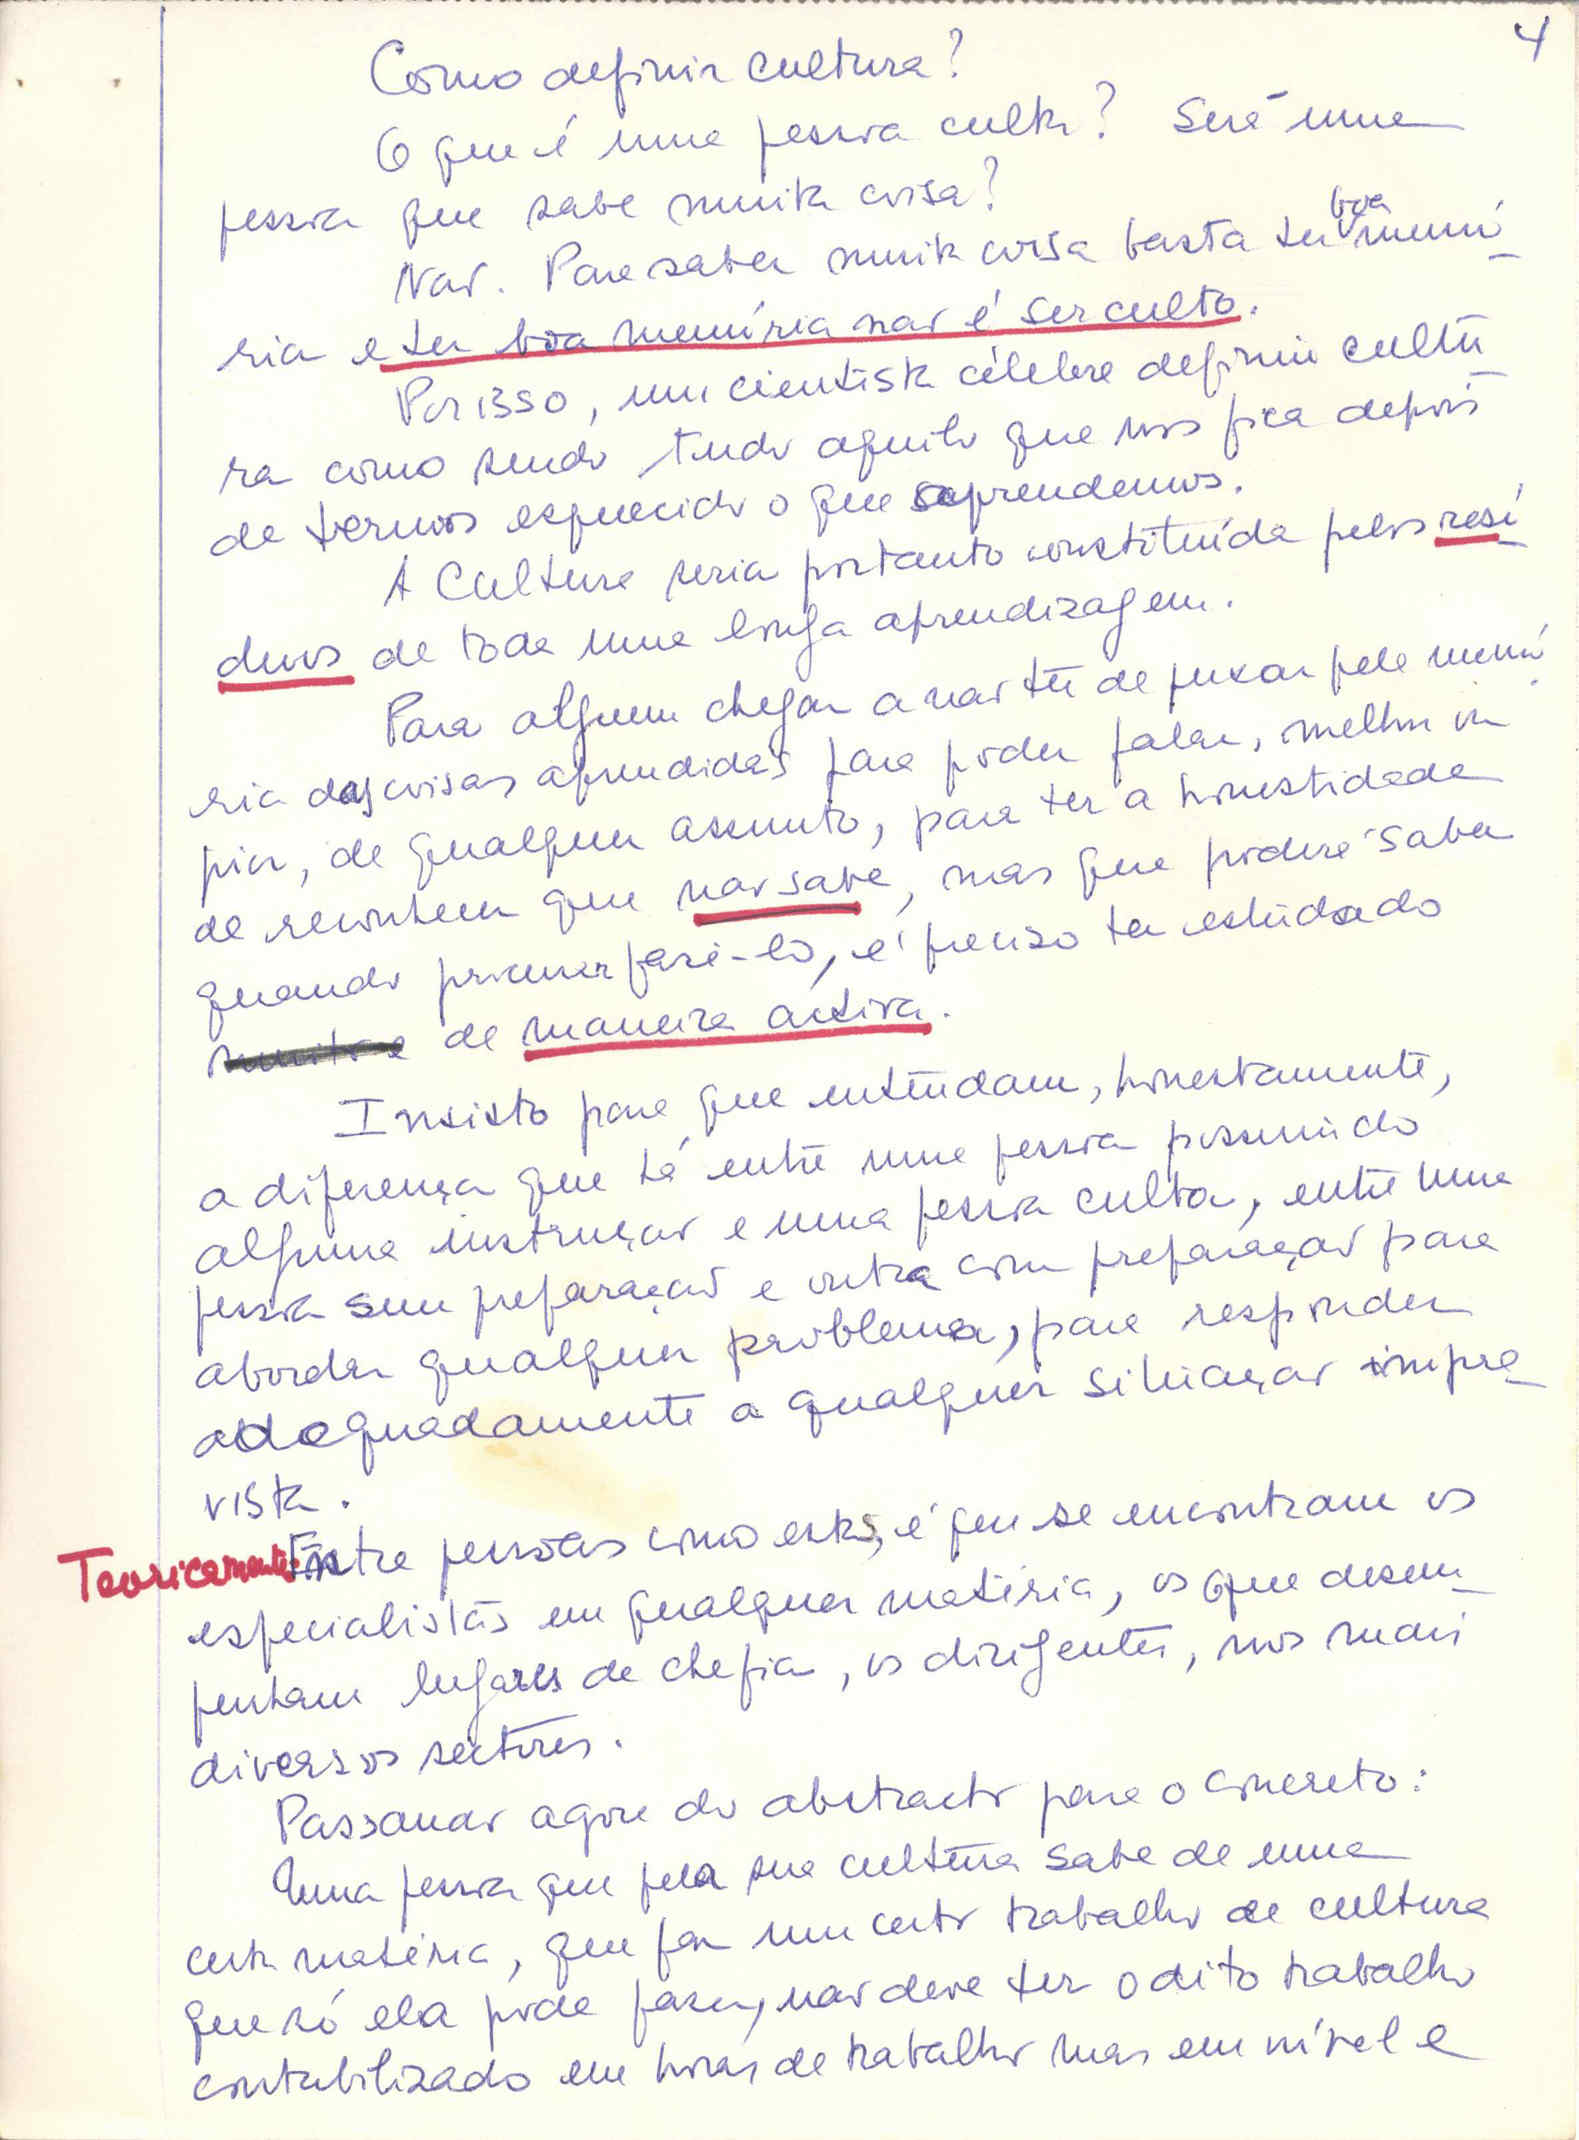 4
Como definir cultura?
O que é uma pessoa culta? Será uma
pessoa que sabe muita coisa?
Não. Para saber muita coisa basta ter boa memó
ria e ter boa memória não é ser culto.
Por isso, um cientista célebre definiu cultu
ra como sendo tudo aquilo que nos fica depois
de termos esquecido o que aprendemos.
A Cultura seria portanto constituída pelos resí
duos de toda uma longa aprendizagem.
Para alguem chegar a não ter de puxar pela memó
ria das coisas aprendidas para poder falar, melhor ou
pior, de qualquer assunto, para ter a honestidade
de reconhecer que não sabe, mas que poderá saber
quando procurar fazê-lo, é preciso ter estudado
de maneira activa.
Insisto para que entendam, honestamente,
a diferença que há entre uma pessoa possuindo
alguma instrução e uma pessoa culta, entre uma
pessoa sem preparação e outra com preparação para
abordar qualquer problema, para responder
adequadamente a qualquer situação impre
vista.
Teoricamente Entre pessoas como estas, é que se encontram os
especialistas em qualquer matéria, os que desem
penham lugares de chefia, os dirigentes, nos mais
diversos sectores.
Passando agora do abstracto para o concreto:
Uma pessoa que pela sua cultura sabe de uma
certa matéria, que faz um certo trabalho de cultura
que só ela pode fazer, não deve ter o dito trabalho
contabilizado em horas de trabalho mas em nível e